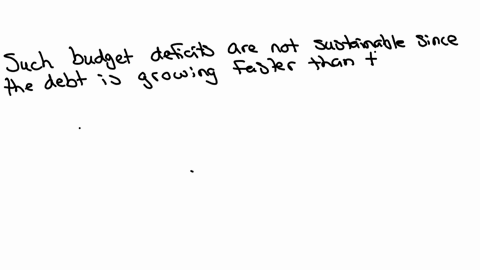 Such budget deficits are not sustainable since
the debt is growing faster than t